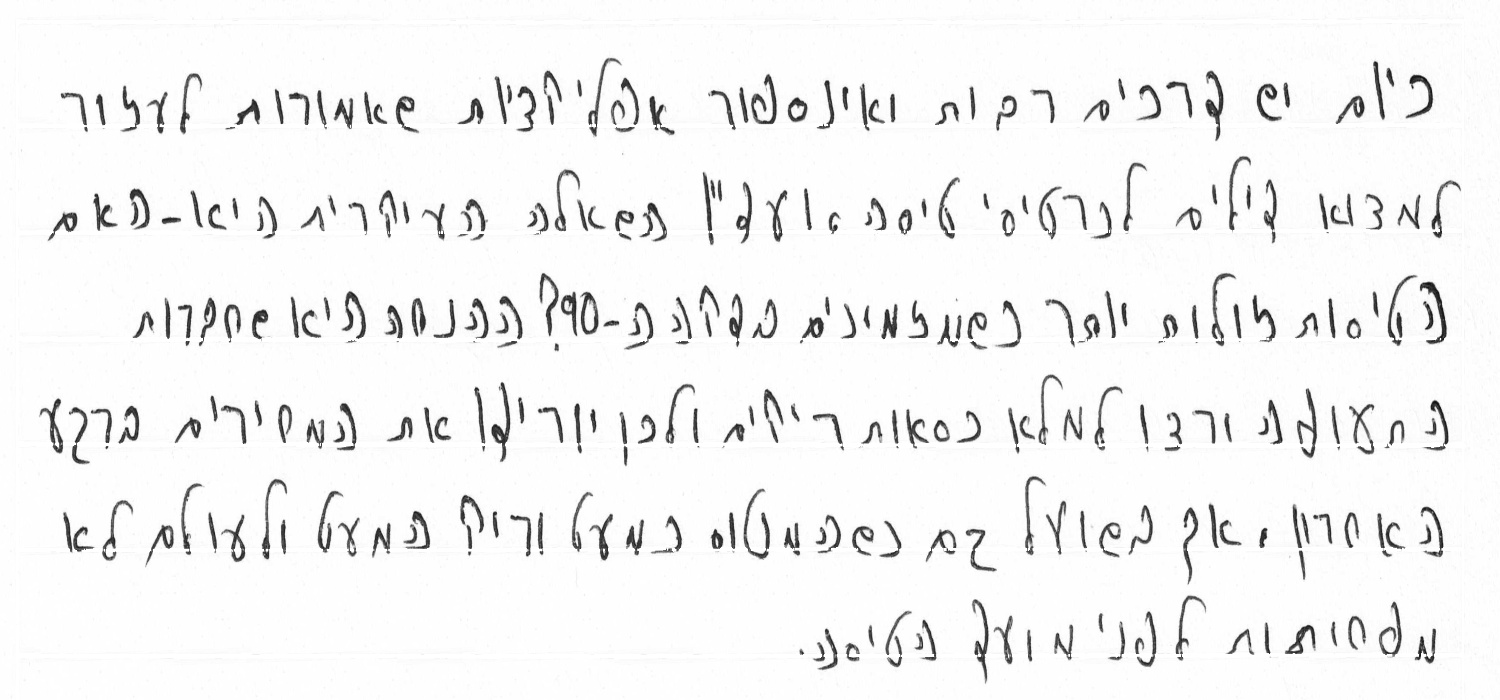 כיום יש דרכים רבות ואינספור אפליקציות שאמורות לעזור
למצוא דילים לכרטיסי טיסה, ועדיין השאלה העיקרית היא - האם
הטיסות זולות יותר כשמזמינים בדקה ה-90? ההנחה היא שחברות
התעופה ירצו למלא כסאות ריקים ולכן יורידו את המחירים ברגע
האחרון, אך בפועל גם כשהמטוס כמעט וריק המעט ולעולם לא
מפחותות לפני מועד הטיסה.